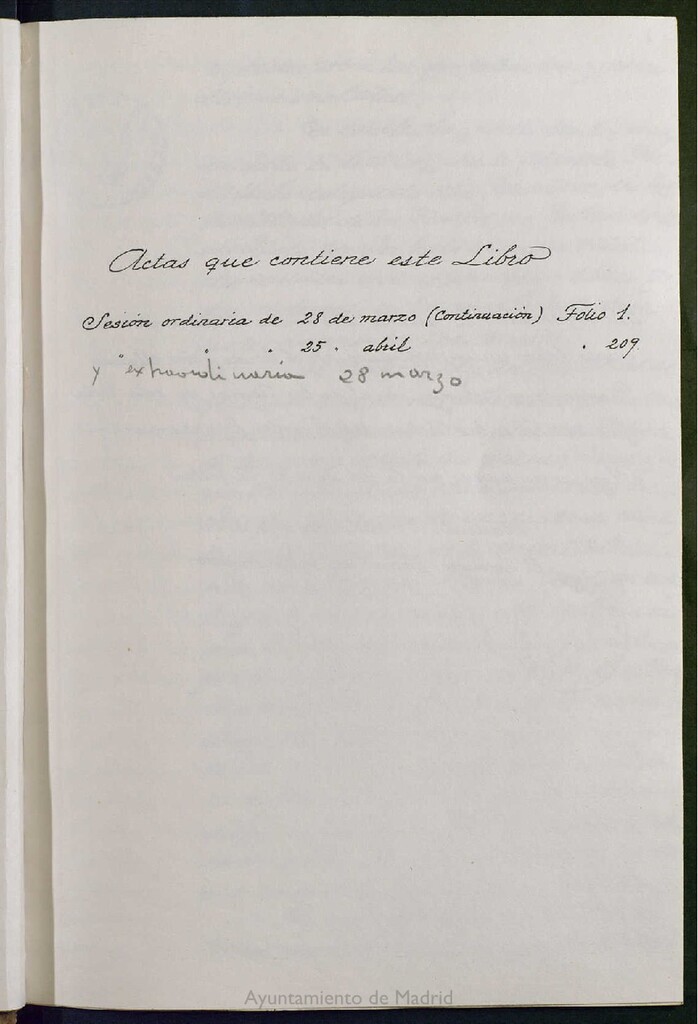 Actas que contiene este Libro
Sesión ordinaria de 28 de marzo (Continuación) Folio 1.
" " 25 " abril " 209
y " extraordinaria 28 marzo
Ayuntamiento de Madrid